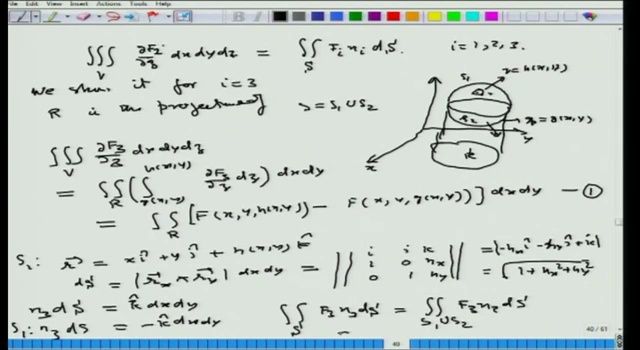 Edit View Insert Actions Tools Help
B
∭_V ∂F_i/∂z dx dy dz = ∬_S F_i n_i dS. i=1,2,3.
we show it for i=3
R is the projection of S = S₁ ∪ S₂
S₁ z=h(x,y)
S₂ z=g(x,y)
R
x y
∭_V ∂F₃/∂z dx dy dz
= ∬_R (∫_{g(x,y)}^{h(x,y)} ∂F₃/∂z dz) dx dy
= ∬_R [F(x,y,h(x,y)) − F(x,y,g(x,y))] dx dy — ①
S₁: r⃗ = x î + y ĵ + h(x,y) k̂
dS = |r⃗ₓ × r⃗ᵧ| dx dy = || i j k ; 1 0 hₓ ; 0 1 hᵧ || = |−hₓ î − hᵧ ĵ + k̂|
= √(1+hₓ²+hᵧ²)
n₃ dS = k̂ dx dy
S₁: n₃ dS = −k̂ dx dy
∬_S F₃ n₃ dS = ∬_{S₁∪S₂} F₃ n₃ dS
=
40 / 61
40